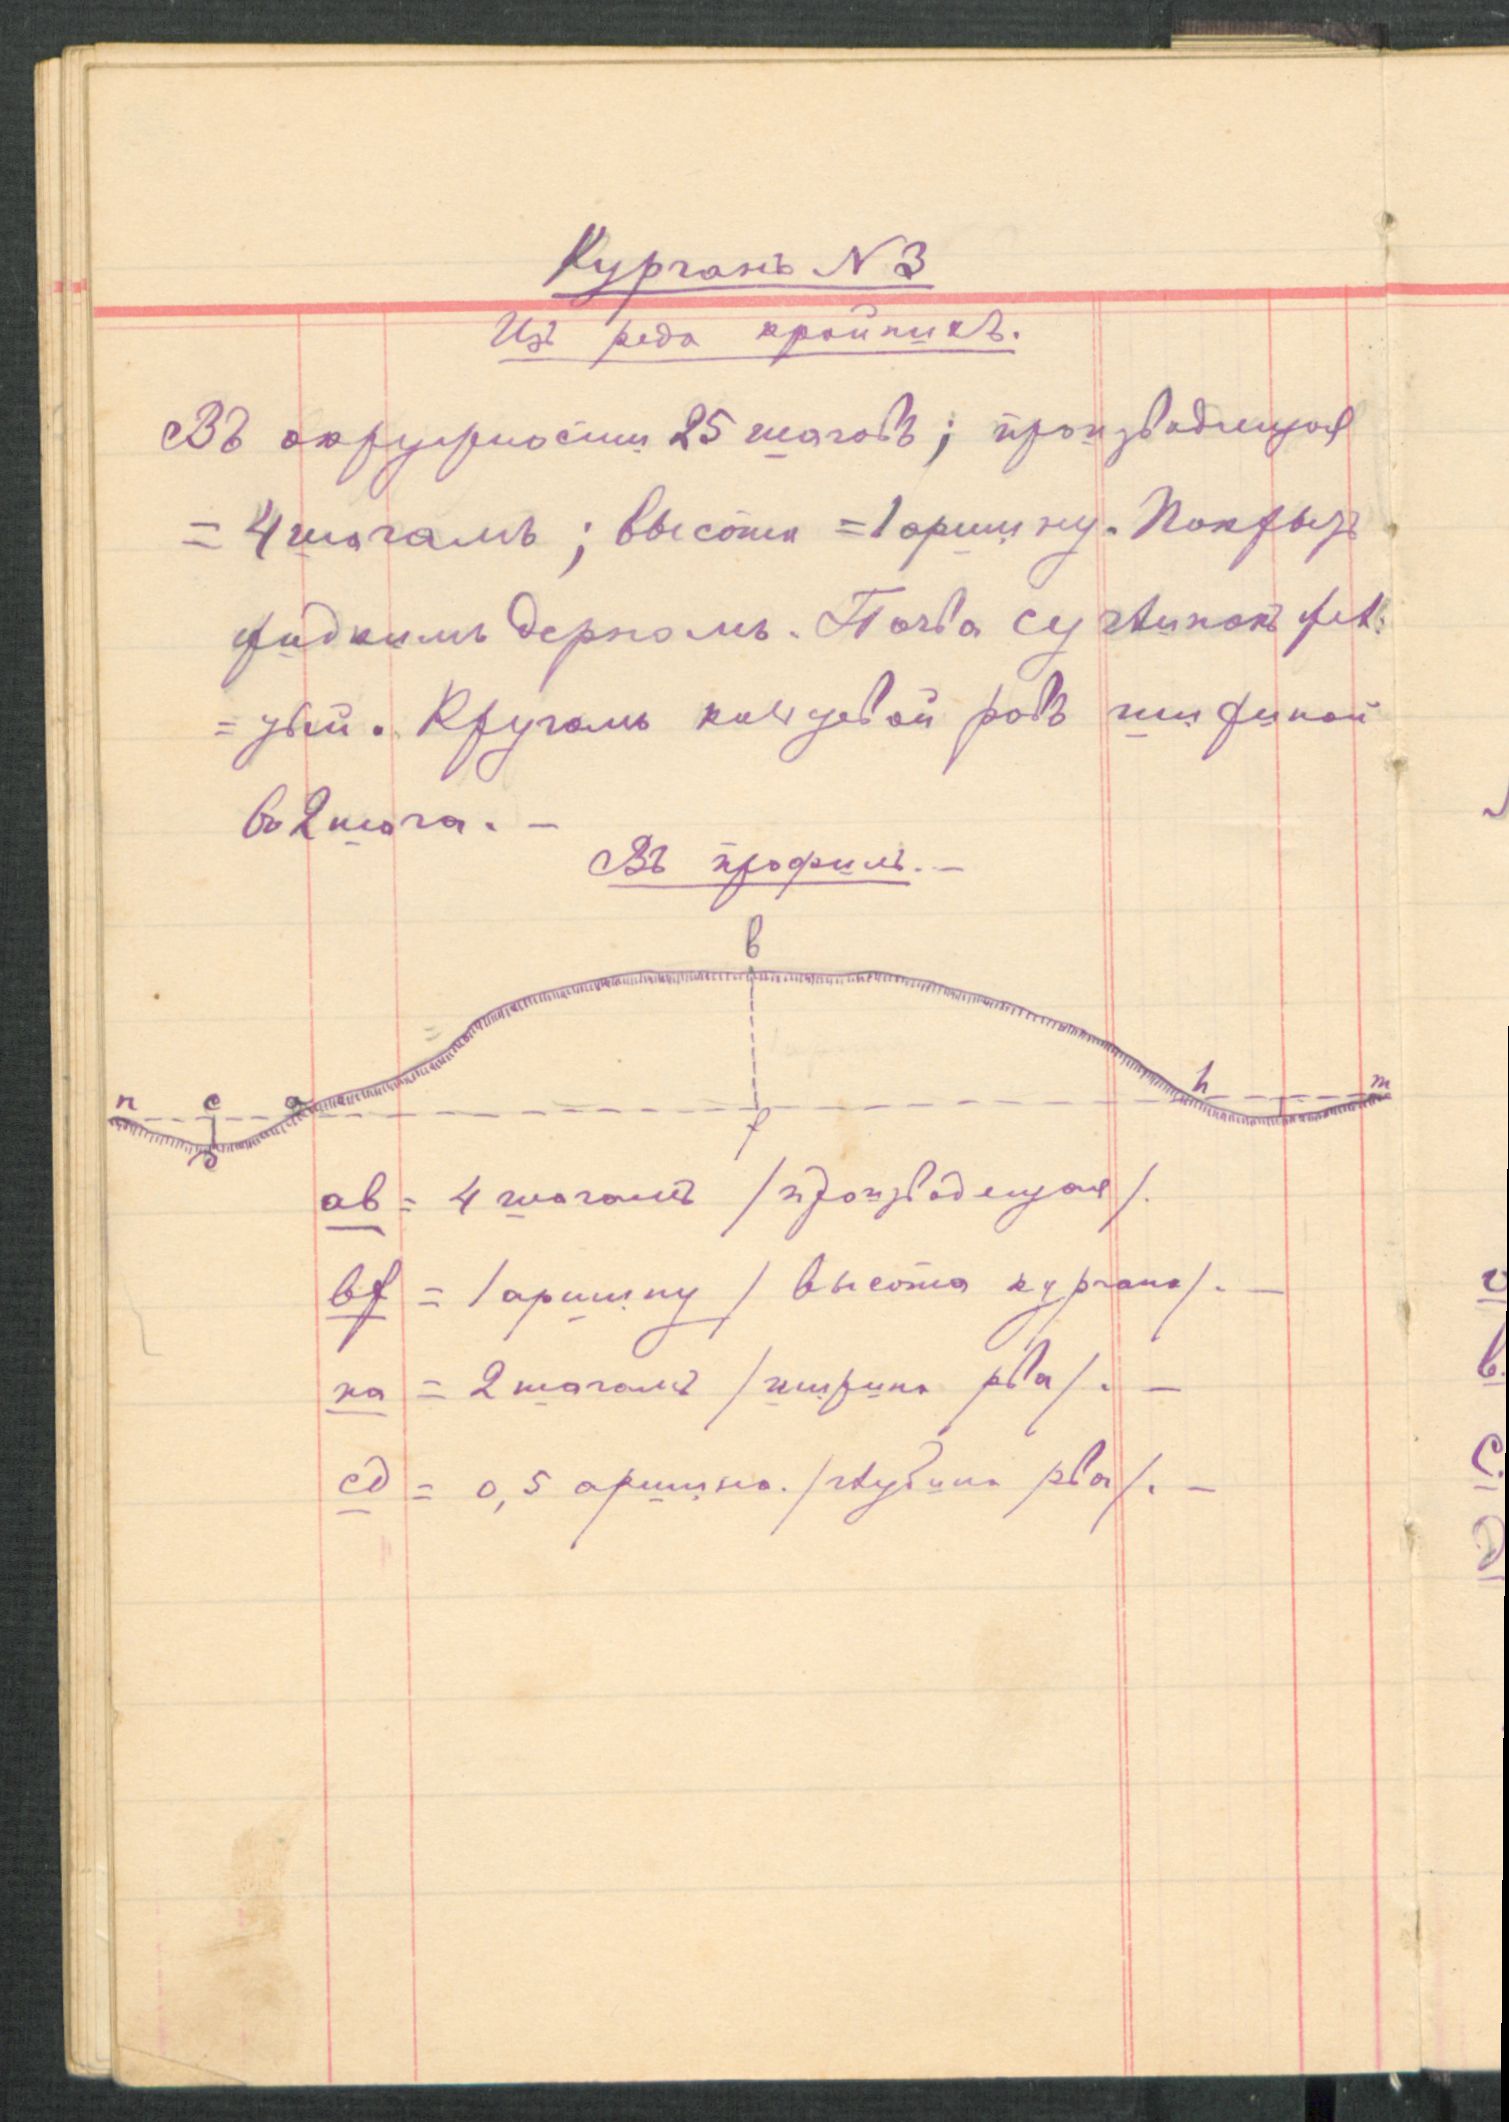 Курганъ N 3
Изъ ряда крайнихъ.
Въ окружности 25 шаговъ; производящая
= 4 шагамъ; высота = 1 аршину. Покрытъ
рѣдкимъ дерномъ. Почва суглинокъ
Кругомъ кольцевой ровъ шириной
въ 2 шага. –
Въ профиль. –
в
n c a h m
д f
ав = 4 шагамъ /производящая/.
вf = 1 аршину /высота кургана/. –
на = 2 шагамъ /ширина рва/. –
сд = 0,5 аршина. /глубина рва/. –